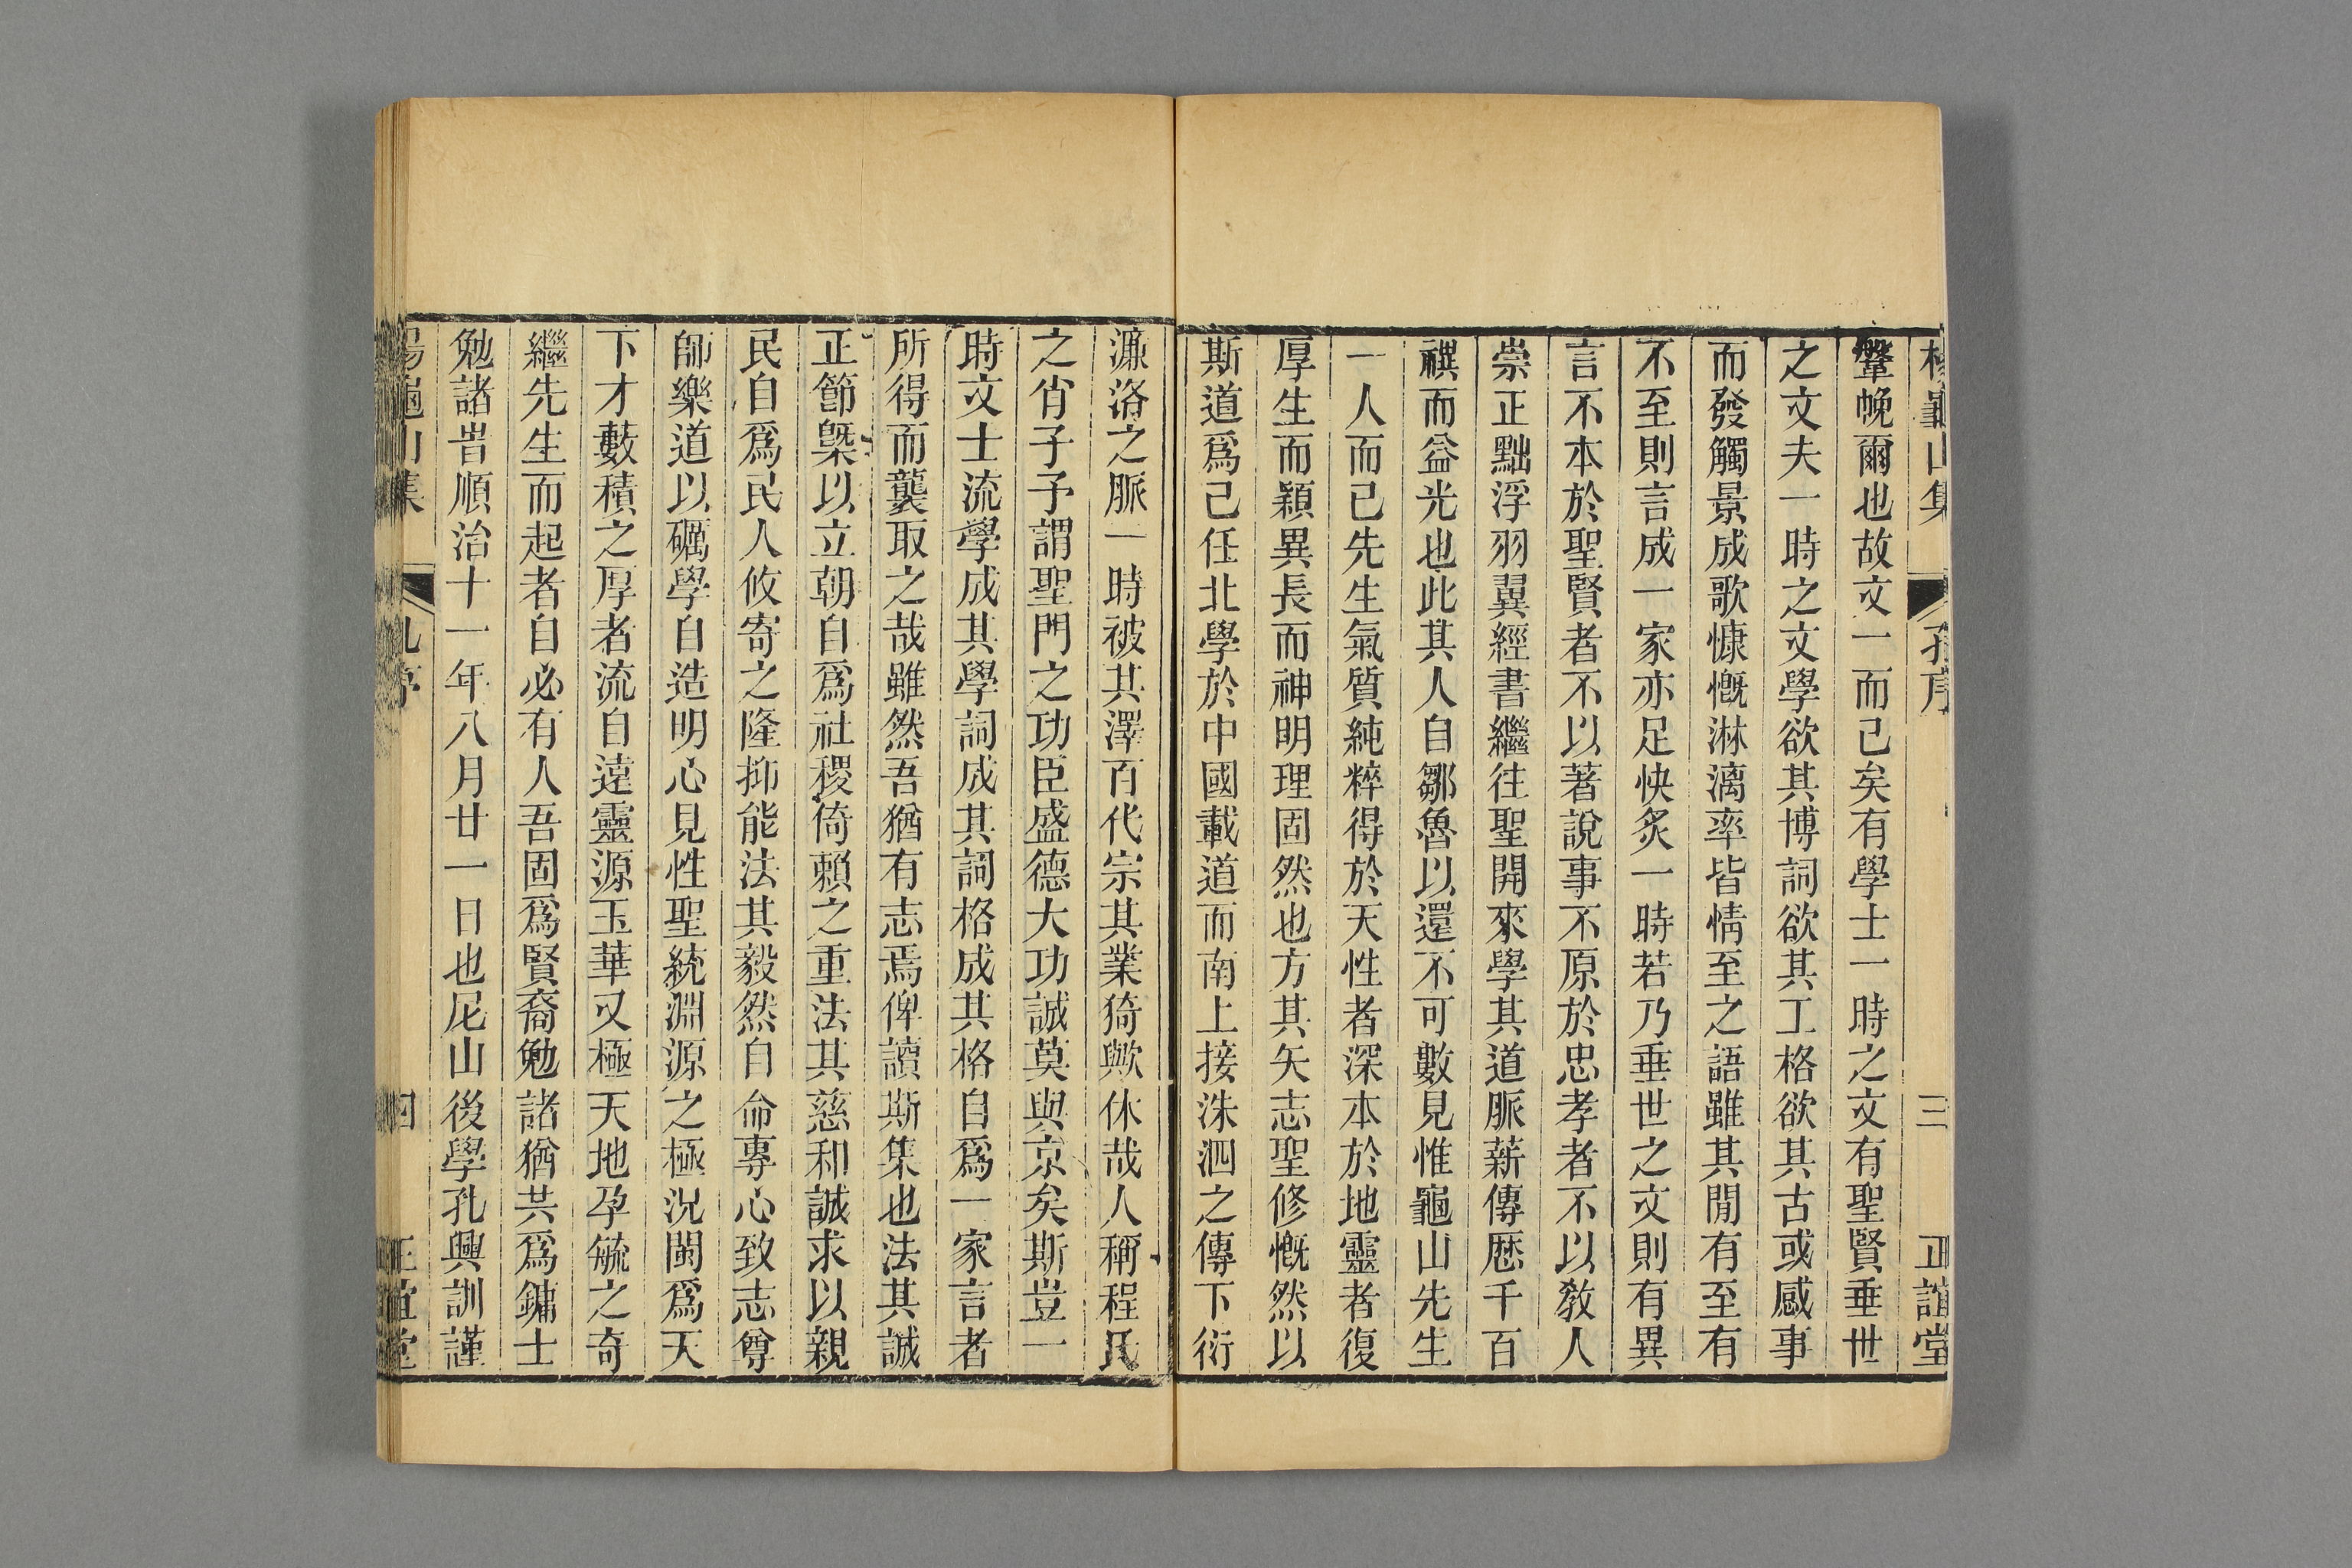 楊龜山集 孔序 三 正誼堂
鞶帨爾也故文一而已矣有學士一時之文有聖賢垂世
之文夫一時之文學欲其博詞欲其工格欲其古或感事
而發觸景成歌慷慨淋漓率皆情至之語雖其閒有至有
不至則言成一家亦足快炙一時若乃垂世之文則有異
言不本於聖賢者不以著說事不原於忠孝者不以敎人
崇正黜浮羽翼經書繼往聖開來學其道脈薪傳歷千百
禩而益光也此其人自鄒魯以還不可數見惟龜山先生
一人而已先生氣質純粹得於天性者深本於地靈者復
厚生而穎異長而神明理固然也方其矢志聖修慨然以
斯道爲己任北學於中國載道而南上接洙泗之傳下衍
濂洛之脈一時被其澤百代宗其業猗歟休哉人稱程氏
之肖子予謂聖門之功臣盛德大功誠莫與京矣斯豈一
時文士流學成其學詞成其詞格成其格自爲一家言者
所得而襲取之哉雖然吾猶有志焉俾讀斯集也法其誠
正節槩以立朝自爲社稷倚賴之重法其慈和誠求以親
民自爲民人攸寄之隆抑能法其毅然自命專心致志尊
師樂道以礪學自造明心見性聖統淵源之極況閩爲天
下才藪積之厚者流自遠靈源玉華又極天地孕毓之奇
繼先生而起者自必有人吾固爲賢裔勉諸猶共爲鏞士
勉諸旹順治十一年八月廿一日也尼山後學孔興訓謹
楊龜山集 孔序 四 正誼堂